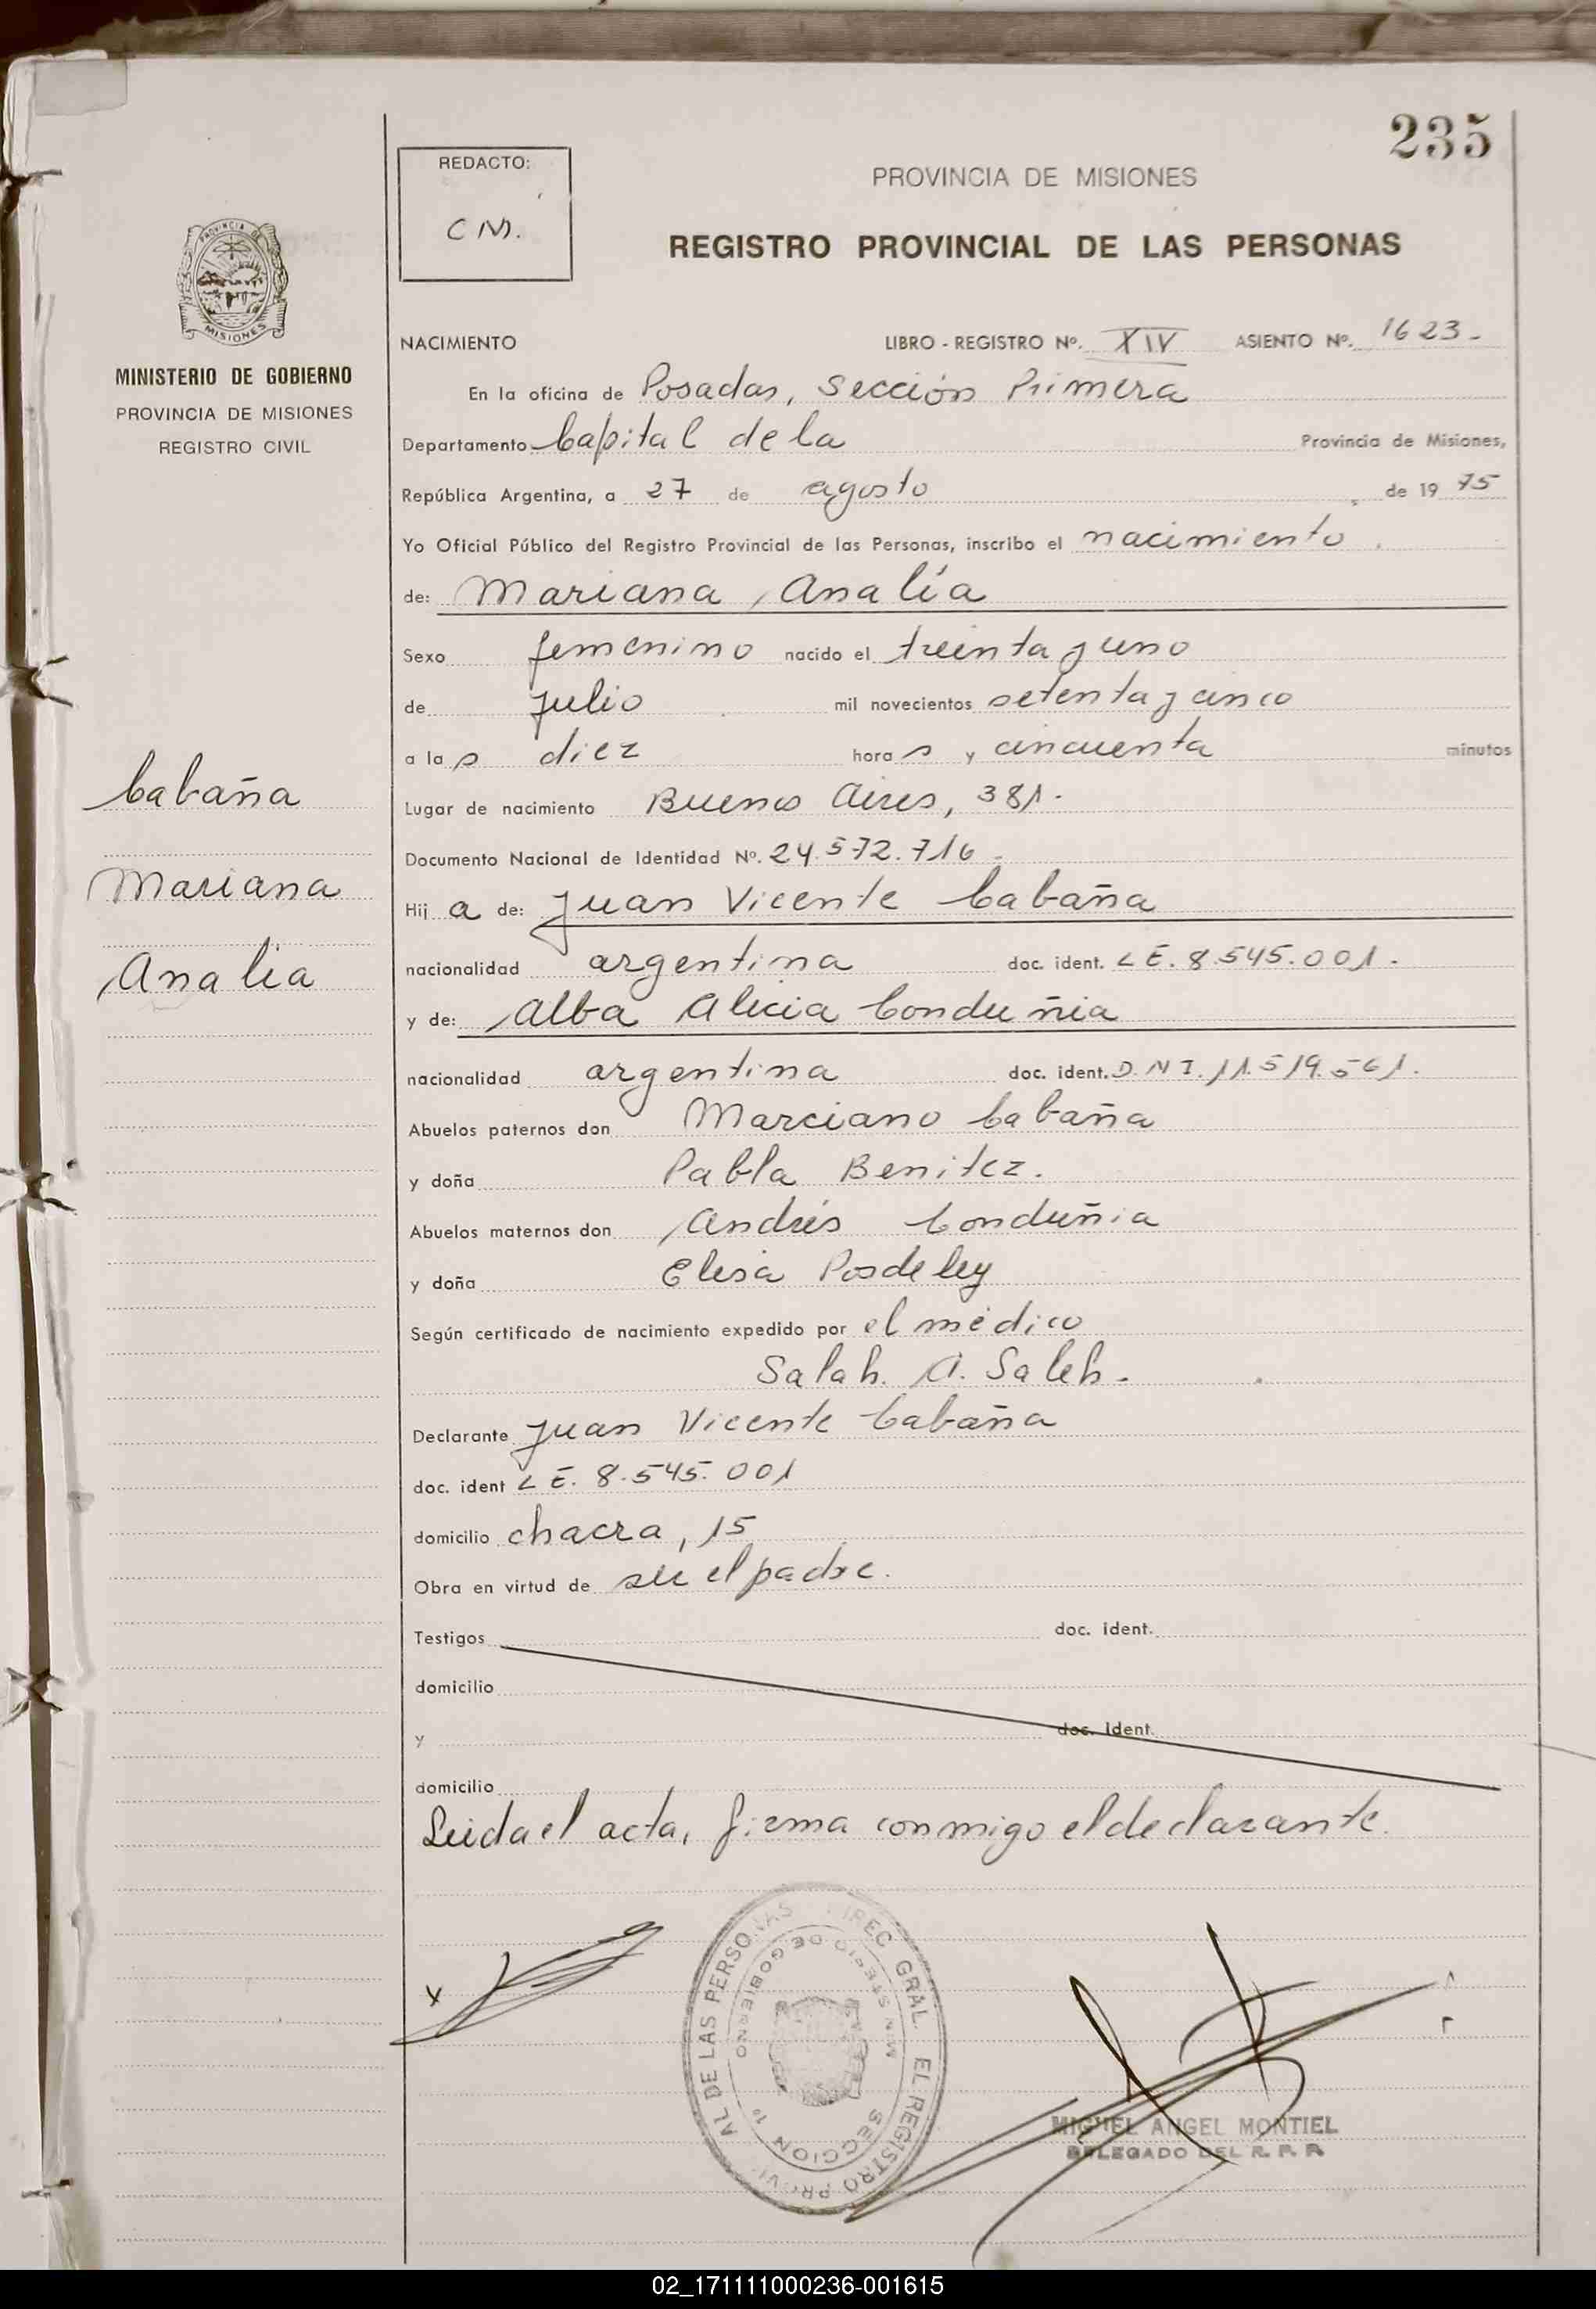 235
REDACTO:
C M.
PROVINCIA DE MISIONES
REGISTRO PROVINCIAL DE LAS PERSONAS
PROVINCIA DE
MISIONES
MINISTERIO DE GOBIERNO
PROVINCIA DE MISIONES
REGISTRO CIVIL
NACIMIENTO LIBRO - REGISTRO Nº. XIV ASIENTO Nº. 1623-
En la oficina de Posadas, Sección Primera
Departamento Capital de la Provincia de Misiones,
República Argentina, a 27 de agosto de 1975
Yo Oficial Público del Registro Provincial de las Personas, inscribo el nacimiento
de: Mariana Analía
Sexo femenino nacido el treinta y uno
de julio mil novecientos setenta y cinco
a la s diez hora s y cincuenta minutos
Lugar de nacimiento Buenos Aires, 381.
Documento Nacional de Identidad Nº. 24.572.716
Hij a de: Juan Vicente Cabaña
nacionalidad argentina doc. ident. L E. 8.545.001.
y de: Alba Alicia Conduñia
nacionalidad argentina doc. ident. D.N I. 11.519.561.
Abuelos paternos don Marciano Cabaña
y doña Pabla Benitez.
Abuelos maternos don Andrés Conduñia
y doña Elisa Posdeley
Según certificado de nacimiento expedido por el médico
Salah. A. Saleh.
Declarante Juan Vicente Cabaña
doc. ident L E. 8.545.001
domicilio chacra, 15
Obra en virtud de ser el padre.
Testigos doc. ident.
domicilio
y doc. ident.
domicilio
Leida el acta, firma conmigo el declarante.
Cabaña
Mariana
Analia
x
DIREC. GRAL. EL REGISTRO PROVI AL DE LAS PERSONAS
MINISTERIO DE GOBIERNO
SECCION 1º
MIGUEL ANGEL MONTIEL
DELEGADO DEL R. P. P.
02_171111000236-001615